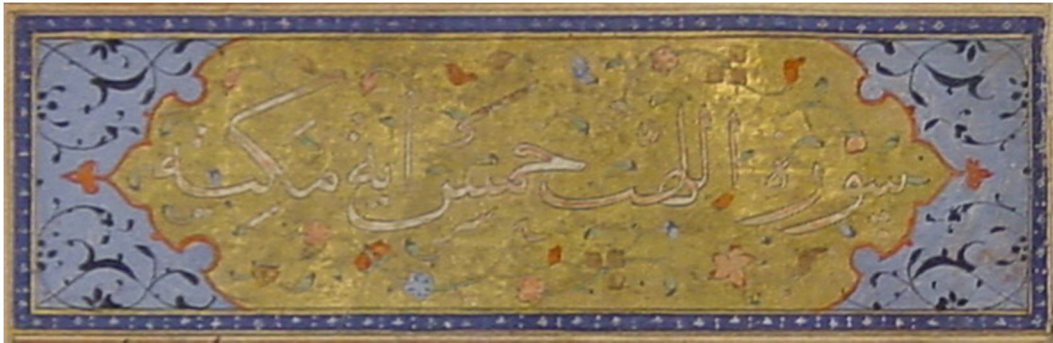 سورة اللهب خمس آية مكية